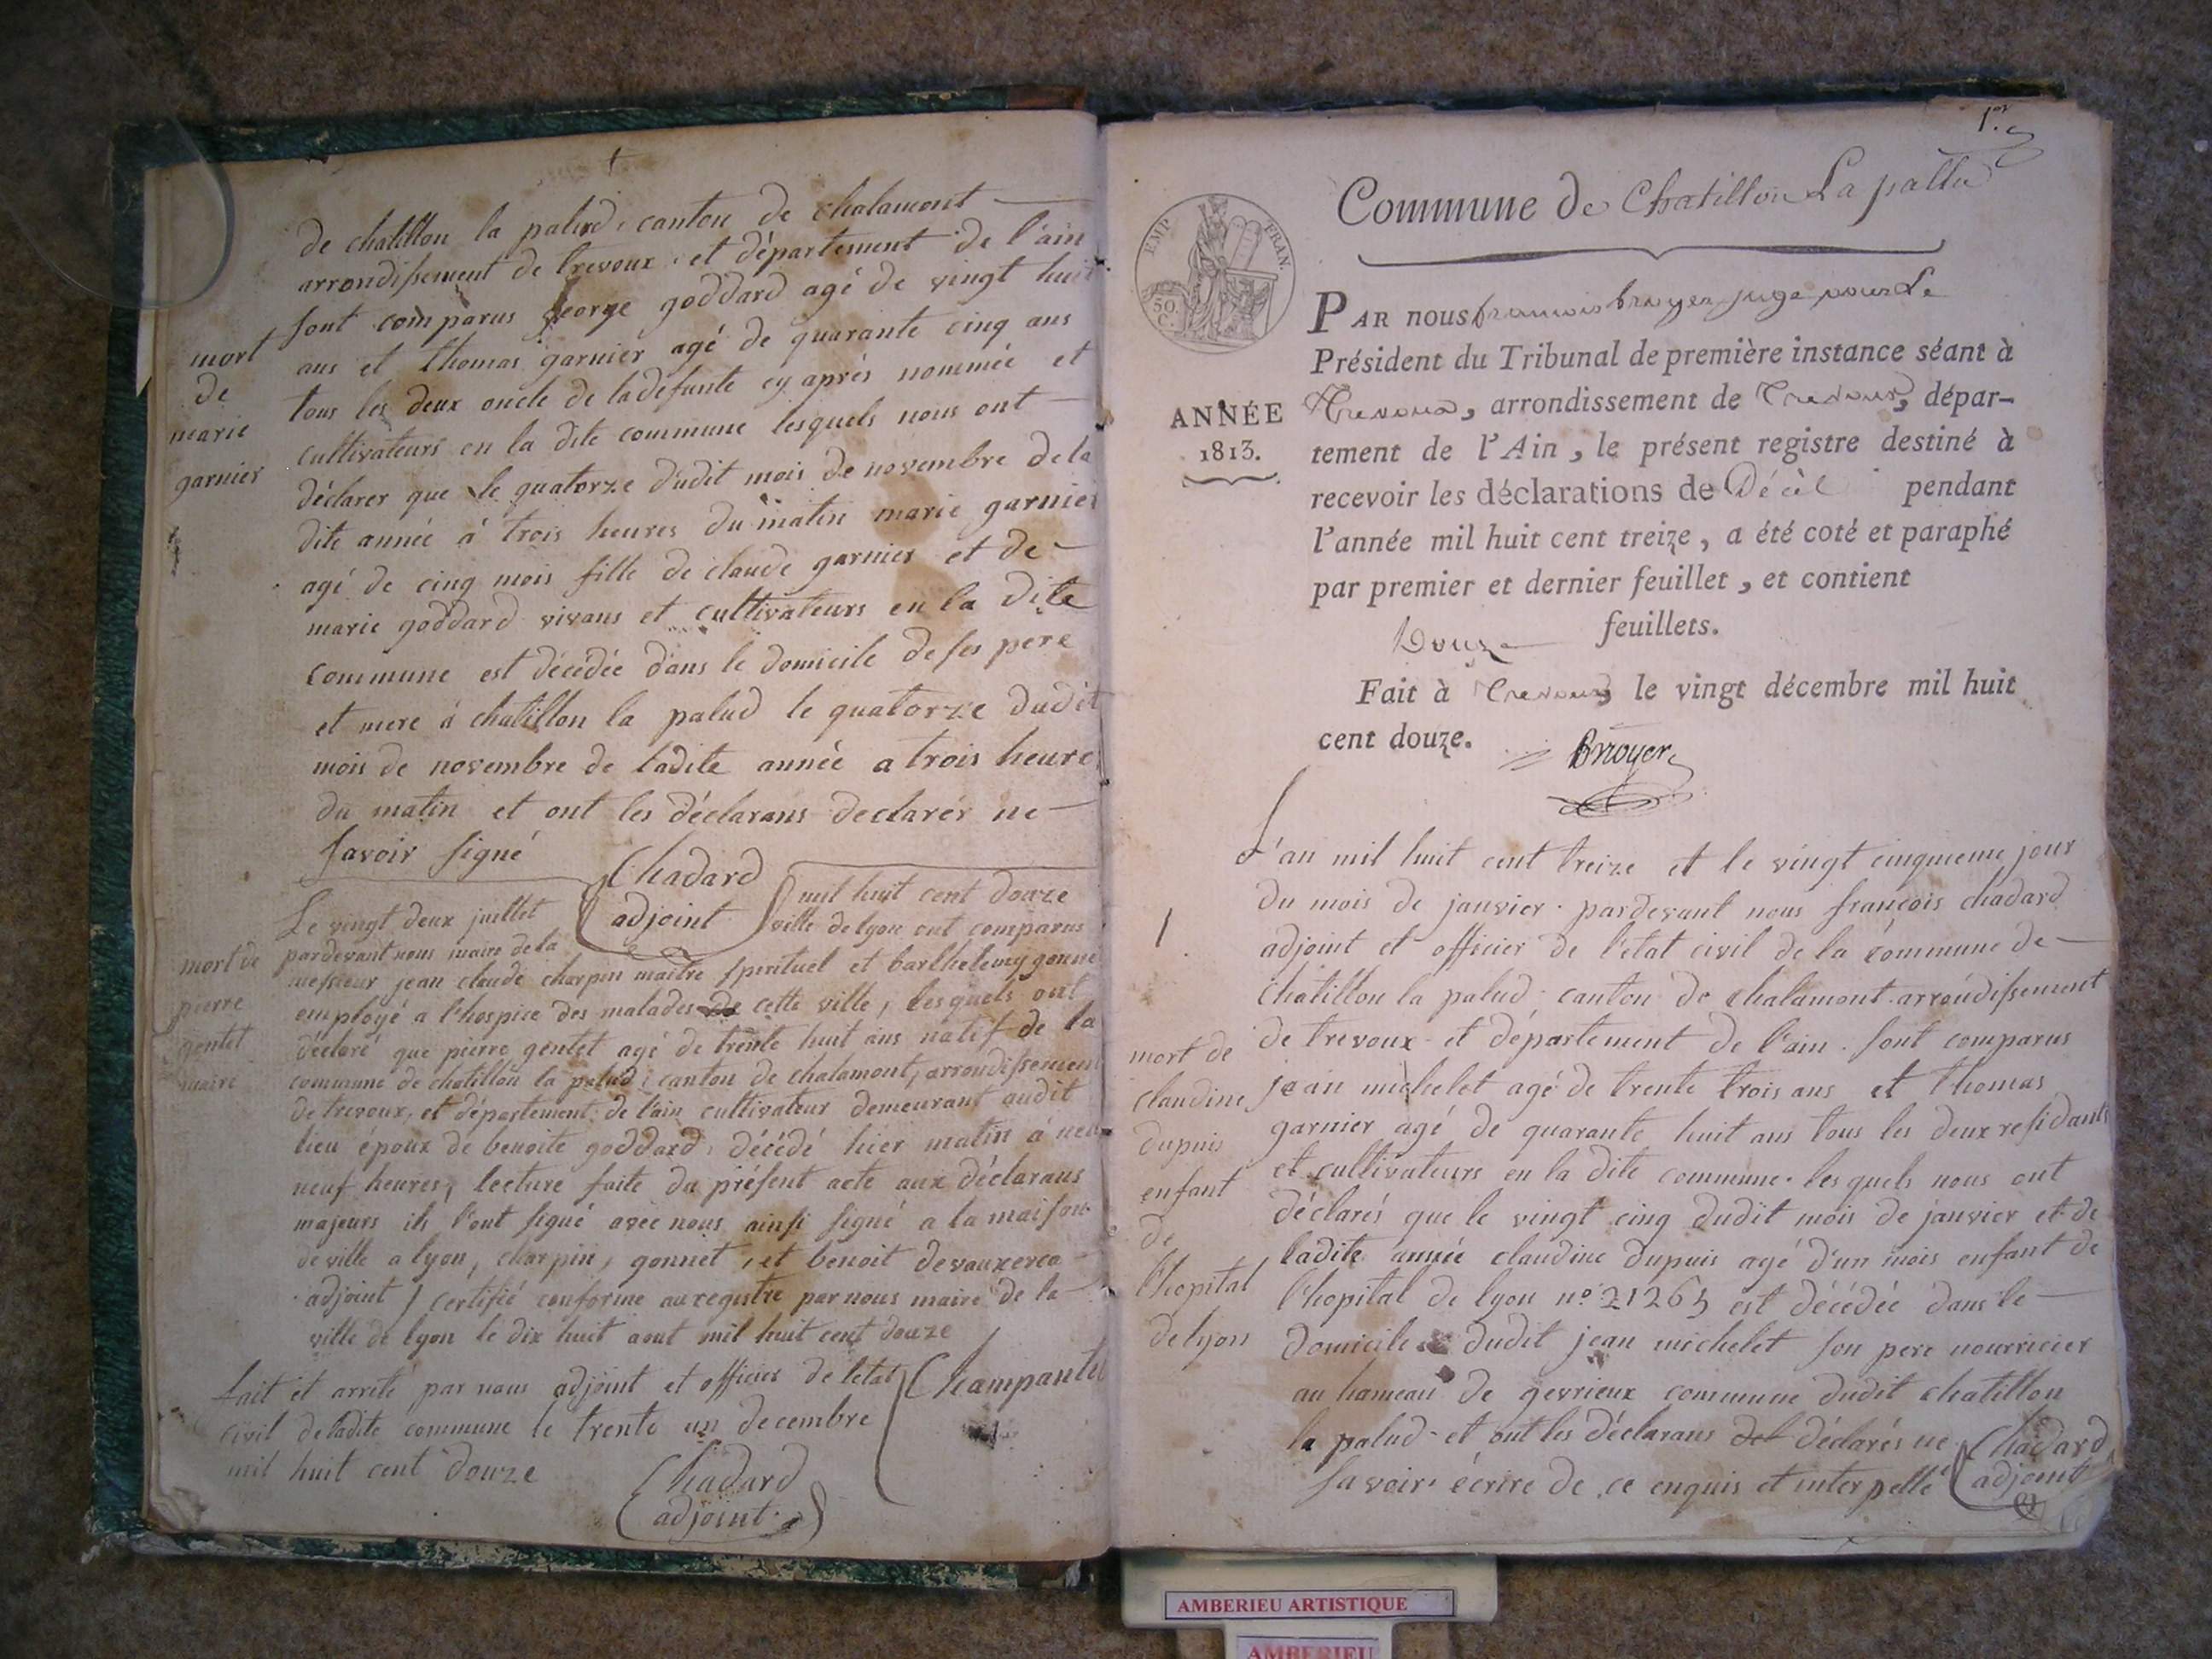 de chatillon la palud, canton de chalamont
arrondissement de trevoux, et département de l'ain
sont comparus george goddard agé de vingt huit
ans et thomas garnier agé de quarante cinq ans
tous les deux oncle de ladefunte cy après nommée et
cultivateurs en la dite commune lesquels nous ont
déclarer que le quatorze dudit mois de novembre de la
dite année à trois heures du matin marie garnier
agé de cinq mois fille de claude garnier et de
marie goddard vivans et cultivateurs en la dite
commune est décédée dans le domicile de ses pere
et mere à chatillon la palud le quatorze dudit
mois de novembre de ladite année a trois heures
du matin et ont les déclarans declarér ne
savoir signé
Chadard
adjoint
mort
de
marie
garnier
Le vingt deux juillet mil huit cent douze
pardevant nous maire de la ville de lyon ont comparus
messieur jean claude charpin maitre spirituel et barthelemy gonnet
employé a l'hospice des malades de cette ville, lesquels ont
déclaré que pierre gentet agé de trente huit ans natif de la
commune de chatillon la palud, canton de chalamont, arrondissement
de trevoux, et département de l'ain cultivateur demeurant audit
lieu époux de benoite goddard, décédé hier matin à
neuf heures, lecture faite du présent acte aux déclarans
majeurs ils l'ont signé avec nous ainsi signé a la maison
de ville a lyon, charpin, gonnet, et benoit
adjoint / certifié conforme au registre par nous maire de la
ville de lyon le dix huit aout mil huit cent douze
mort de
pierre
gentet
maire
fait et arreté par nous adjoint et officier de letat
civil de ladite commune le trente un decembre
mil huit cent douze
Chadard
adjoint
1er
Commune de Chatillon La pallu
EMP. FRAN.
50
C.
ANNÉE
1813.
PAR nous francois bruyer juge pour Le
Président du Tribunal de première instance séant à
Trevoux, arrondissement de Trevoux, dépar-
tement de l'Ain, le présent registre destiné à
recevoir les déclarations de Décès pendant
l'année mil huit cent treize, a été coté et paraphé
par premier et dernier feuillet, et contient
Douze feuillets.
Fait à Trevoux le vingt décembre mil huit
cent douze.
Bruyer
L'an mil huit cent treize et le vingt cinquieme jour
du mois de janvier. pardevant nous françois chadard
adjoint et officier de l'etat civil de la commune de
Chatillon la palud. canton de chalamont. arrondissement
de trevoux et département de l'ain. sont comparus
jean michelet agé de trente trois ans et thomas
garnier agé de quarante huit ans tous les deux residants
et cultivateurs en la dite commune. lesquels nous ont
déclarés que le vingt cinq dudit mois de janvier et de
ladite année claudine dupuis agé d'un mois enfant de
l'hopital de lyon no 21263 est décédée dans le
domicile dudit jean michelet son pere nourricier
au hameau de gevrieux commune dudit chatillon
la palud et ont les déclarans déclarés ne
savoir écrire de ce enquis et interpellé
Chadard
adjoint
1
mort de
claudine
dupuis
enfant
de
l'hopital
de lyon
AMBERIEU ARTISTIQUE
AMBERIEU